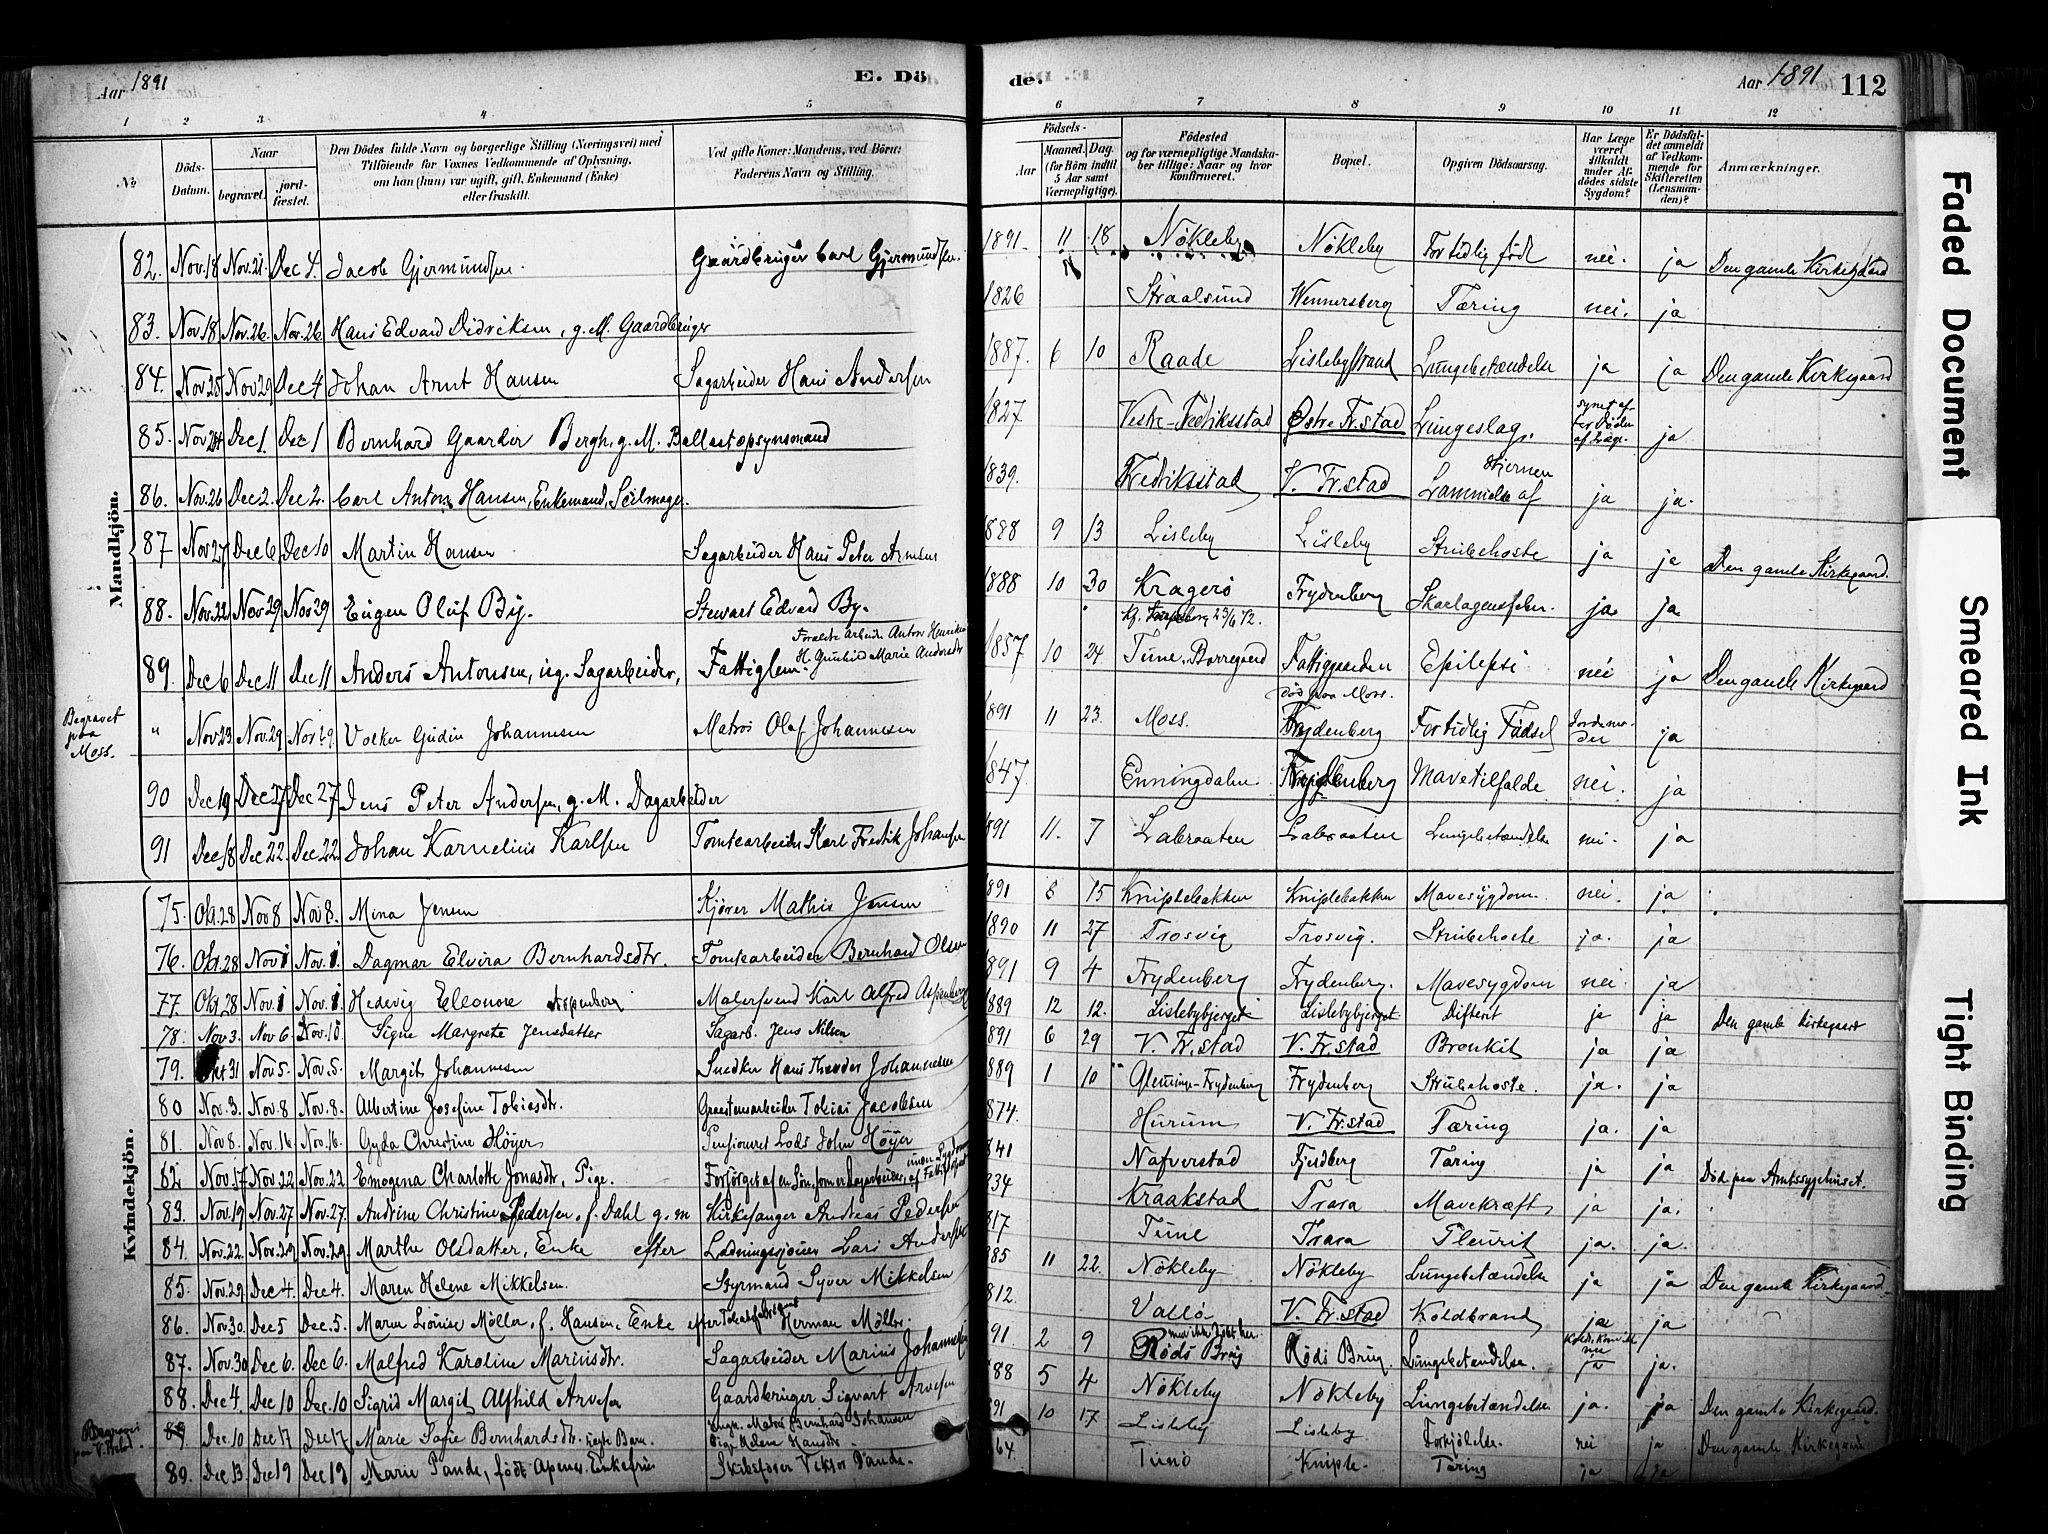 Aar 1891 E. Dö de. Aar 1891 112
1 2 3 4 5 6 7 8 9 10 11 12
No Döds-Datum. Naar begravet. jordfæstet. Den Dödes fulde Navn og borgerlige Stilling (Næringsvei) med Tilföiende for Voxnes Vedkommende af Oplysning, om han (hun) var ugift, gift, Enkemand (Enke) eller fraskilt. Ved gifte Koner: Mandens, ved Börn: Faderens Navn og Stilling. Födsels- Aar Maaned. Dag. (for Börn indtil 5 Aar samt Værnepligtige). Födested og for værnepligtige Mandskaber tillige: Naar og hvor konfirmeret. Bopæl. Opgiven Dödsaarsag. Har Læge været tilkaldt under Afdödes sidste Sygdom? Er Dödsfaldet anmeldt af Vedkommende for Skifteretten (Lensmanden)? Anmærkninger.
Mandkjön.
82. Nov.18 Nov.21. Dec 4. Jacob Gjermundsen. Gaardbruger Carl Gjermundsen. 1891. 11 18 Nökleby Nökleby For tidlig född nei. ja Den gamle Kirkegaard
83. Nov.18 Nov.26. Nov.26 Hans Edvard Didriksen, g. M. Gaardbruger 1826 Straalsund Wennersberg Tæring nei. ja
84. Nov.25 Nov 29 Dec 4 Johan Arnt Hansen Sagarbeider Hans Andersen 1887. 6 10 Raade Lislebystrand Lungebetændelse ja ja Den gamle Kirkegaard
85. Nov 24 Dec 1. Dec 1 Bernhard Gaarder Bergh, g. M. Ballastopsynsmand 1827 Vestre-Fredriksstad Østre Fr.stad Lungeslag. synet af før Döden af Læge. ja
86. Nov.26 Dec 2. Dec 2. Carl Anton Hansen, Enkemand, Seilmager. 1839. Fredriksstad V. Fr.stad Lammelse af Hjernen ja ja.
87 Nov 27 Dec 6 Dec 10 Martin Hansen Sagarbeider Hans Peter 1888 9 13 Lisleby Lisleby Strubehoste ja ja Den gamle Kirkegaard.
88. Nov.22 Nov 29 Nov 29 Eugen Oluf By. Stewart Edvard By. 1888 10 30 Kragerö Frydenberg Skarlagensfeber. ja. ja
89. Dec 6 Dec 11 Dec 11 Anders Antonsen, ug. Sagarbeider, Fattiglem. Forældre Arbeider Anton H. Gunhild Marie Andersdtr 1857 10 24 Tune, Borregaard 23/6 72. Fattiggaarden Epilepsi nei ja Den gamle Kirkegaard
Begravet paa Moss. " Nov.23 Nov.29 Nov 29. Volker Gudin Johannesen Matros Olaf Johannesen 1891 11 23. Moss. död paa Moss. Frydenberg For tidlig Födsel Jordemoder ja
90 Dec 19 Dec 27 Dec 27 Jens Peter Andersen, g. M. Dagarbeider 1847. Enningdalen Frydenberg Mavetilfælde nei. ja
91 Dec 18 Dec 22 Dec 22 Johan Karnelius Karlsen Tomtearbeider Karl Fredrik Johansen 1891 11. 7 Labraaten Labraaten Lungebetændelse nei. ja
Kvindekjön.
75. Okt.28 Nov 8 Nov 8. Mina Jensen Kjörer Mathis Jensen 891 6 15 Kniplebakken Kniplebakken Mavesygdom. nei. ja
76. Okt.28 Nov 1 Nov. 1. Dagmar Elvira Bernhardsdtr. Tomtearbeider Bernhard Olsen 1890 11 27 Trosvig Trosvig. Strubehoste ja. ja
77. Okt.28 Nov. 1 Nov. 1. Hedevig Eleonore Aspenberg Malersvend Karl Alfred Aspenberg 891 9 4 Frydenberg Frydenberg. Mavesygdom nei. ja
78. Nov 3. Nov 6 Nov.10 Signe Margrete Jensdatter Sagarb. Jens Nilsen 889 12 12. Lislebybjerget Lislebybjerget Difterit ja ja Den gamle Kirkegaard
79. Okt 31 Nov 5. Nov. 5. Margit Johannesen Snedker Hans Theodor Johannesen 891 6 29 V. Fr.stad V. Fr.stad Bronkit ja ja
80 Nov. 3. Nov. 8 Nov. 8. Albertine Josefine Tobiasdtr. Graastensarbeider Tobias Jacobsen 889 1 10 Glemminge-Frydenberg Frydenberg Strubehoste. ja. ja
81. Nov 8. Nov. 16 Nov. 16. Gyda Christine Höyer Pensioneret Lods John Höyer 874. Hurum V. Fr.stad Tæring ja. ja
82 Nov. 17 Nov 22 Nov. 22 Emogena Charlotte Jonasdtr, Pige. Forsörget af en Sön, som er Dagarbeider, under Sygdom af Fattigvæsenet 841 Nafverstad Fjeldberg Tæring ja ja Död paa Amtssygehuset.
83. Nov.19 Nov.27 Nov.27. Andrine Christine Pedersen, f. Dahl g. m Kirkesanger Andreas Pedersen 834 Kraakstad Trara Mavekræft ja ja.
84. Nov.22. Nov.29 Nov.29 Marthe Olsdatter, Enke efter Lars Andersen 817 Tune Trara Pleurit ja. ja.
85. Nov.29 Dec 4. Dec 4. Maren Helene Mikkelsen. Styrmand Syver Mikkelsen 885 11 22. Nökleby Nökleby Lungebetændelse ja ja Den gamle Kirkegaard
86. Nov.30. Dec 5 Dec. 5. Maren Lovise Möller, f. Hansen, Enke efter Tobaksfabrikant Herman Möller. 812. Vallö V. Fr.stad Koldbrand ja ja
87. Nov.30 Dec 6. Dec 6. Malfred Karoline Mariusdtr. Sagarbeider Marius Johannesen 91 2 9 men ikke döbt her. Röds Brug Röds Brug Lungebetændelse. nei ja.
88. Dec 4 Dec 10 Dec. 10 Sigrid Margit Alfhild Arvesen Gaardbruger Sigvart Arvesen 88 5 4 Nökleby Nökleby Lungebetændelse ja. ja Den gamle Kirkegaard.
89 Dec 10 Dec 17 Dec 17 Marie Sofie Bernhardsdtr. uegte Barn. Ungk. Matros Bernhard Johansen Pige Helene Hansdtr. 91 10 17 Lisleby Lisleby Forkjölelse. nei ja Den gamle Kirkegaard
89. Dec 13. Dec 19 Dec 19 Marie Pande, født Enkefrue Skibsförer Viktor Pande. 64. Tunö Kniple. Tæring ja ja
Faded Document
Smeared Ink
Tight Binding